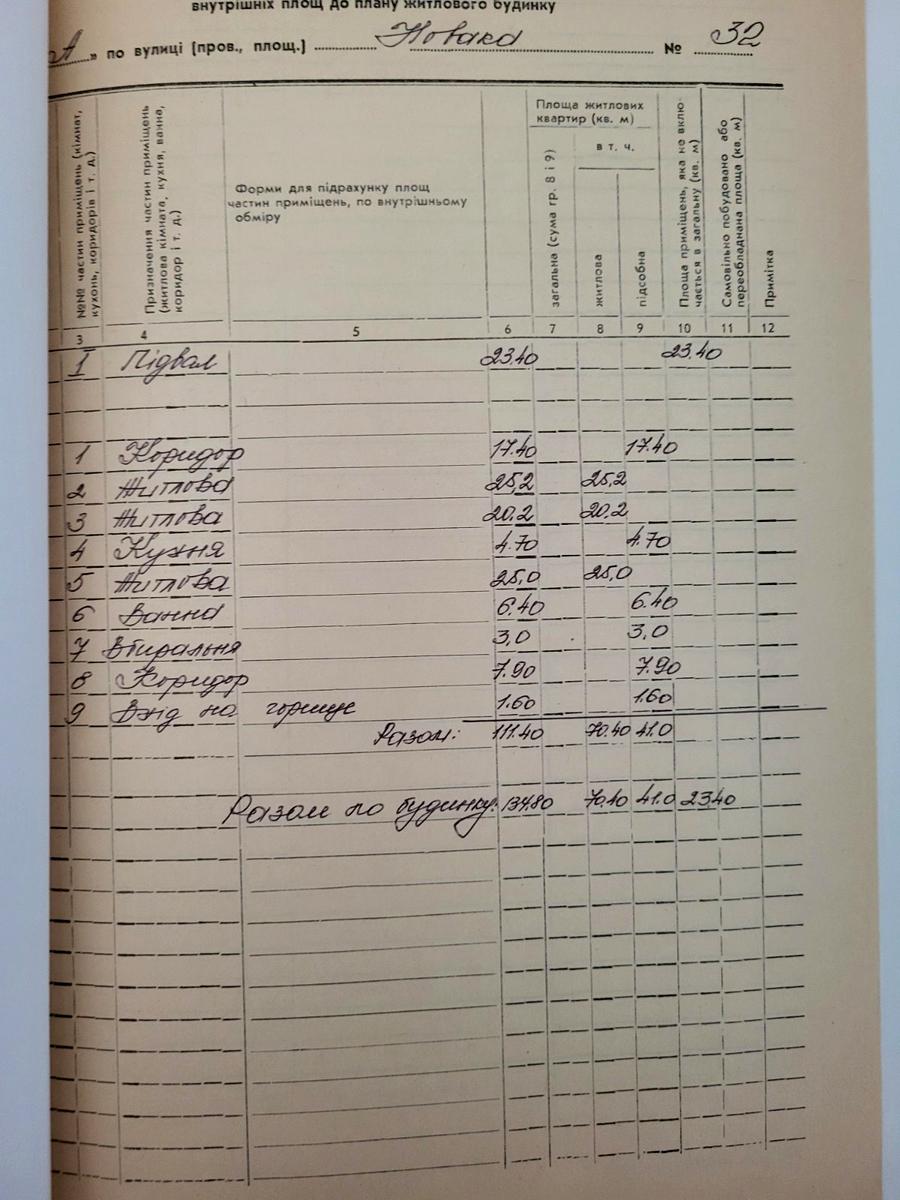 внутрішніх площ до плану житлового будинку
А " по вулиці (пров., площ.) Новака № 32
№№ частин приміщень (кімнат, кухонь, коридорів і т. д.)
Призначення частин приміщень (житлова кімната, кухня, ванна, коридор і т. д.)
Форми для підрахунку площ
частин приміщень, по внутрішньому
обміру
Площа житлових
квартир (кв. м)
загальна (сума гр. 8 і 9)
в т. ч.
житлова
підсобна
Площа приміщень, яка не включається в загальну (кв. м)
Самовільно побудовано або переобладнана площа (кв. м)
Примітка
3 4 5 6 7 8 9 10 11 12
1 Підвал 23.40 23.40
1 Коридор 17.40 17.40
2 Житлова 25,2 25,2
3 Житлова 20.2 20.2
4 Кухня 4.70 4.70
5 Житлова 25,0 25,0
6 Ванна 6.40 6.40
7 Вбиральня 3,0 3,0
8 Коридор 7.90 7.90
9 Вхід на горище 1.60 1.60
Разом: 111.40 70.40 41.0
Разом по будинку: 134.80 70.40 41.0 23.40